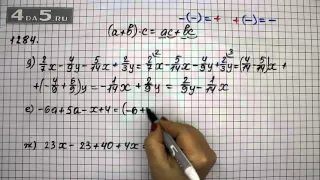 4DA5.RU
(a+b)·c = ac+bc
-(-)=+ +(-)=-
1284.
g) 2/7x - 4/9y - 5/14x + 2/3y = 2/7x - 5/14x - 4/9y + 2/3y = (4/14 - 5/14)x +
+(-4/9 + 6/9)y = -1/14x + 2/9y = 2/9y - 1/14x
e) -6a+5a-x+4 = (-6+
ж) 23x - 23 + 40 + 4x =